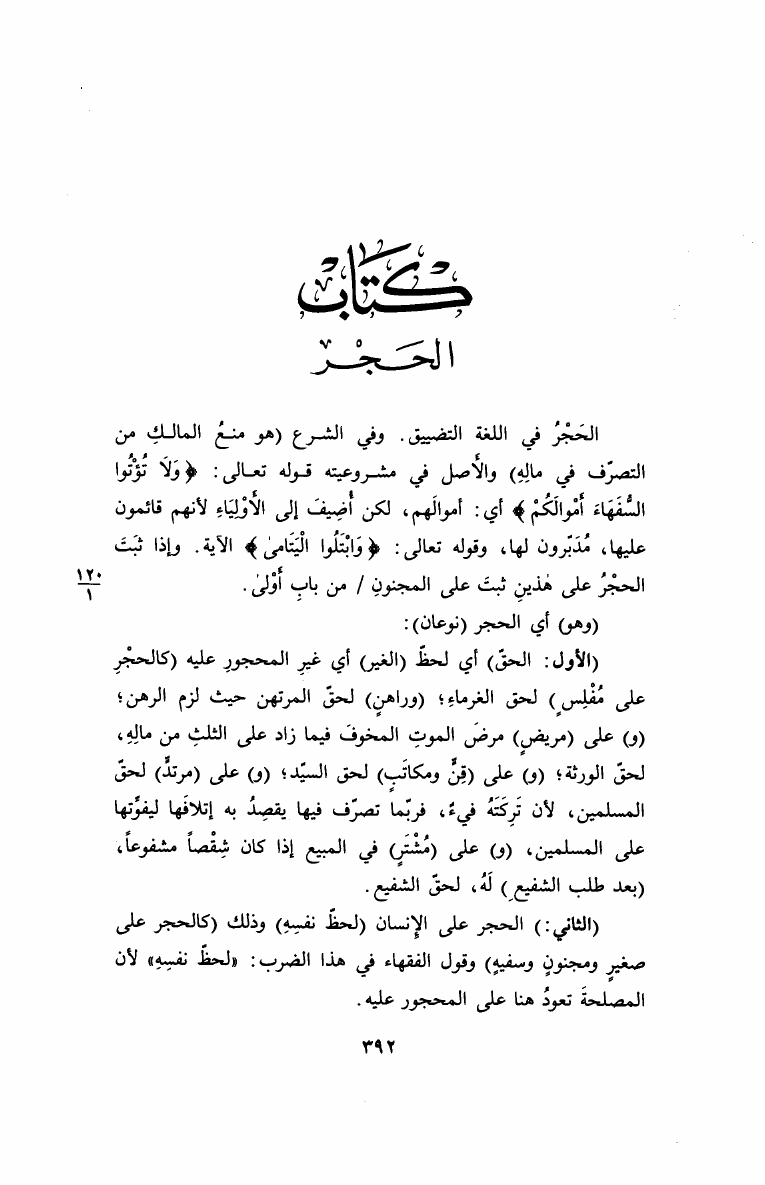 كتاب
الحجر
الحَجْرُ في اللغة التضييق. وفي الشرع (هو منعُ المالكِ من
التصرّف في مالِهِ) والأصل في مشروعيته قوله تعالى: ﴿وَلَا تُؤْتُوا
السُّفَهَاءَ أَمْوالَكُمْ﴾ أي: أموالَهم، لكن أُضِيفَ إلى الأَوْلِيَاءِ لأنهم قائمون
عليها، مُدَبّرون لها، وقوله تعالى: ﴿وَابْتَلُوا الْيَتَامىٰ﴾ الآية. وإذا ثَبَتَ
الحجْرُ على هٰذينِ ثبتَ على المجنونِ / من بابِ أَوْلىٰ.
١٢٠
١
(وهو) أي الحجر (نوعان):
(الأول: الحقّ) أي لحظّ (الغير) أي غيرِ المحجورِ عليه (كالحجْرِ
على مُفْلِسٍ) لحق الغرماءِ؛ (وراهنٍ) لحقّ المرتهن حيث لزم الرهن؛
(و) على (مريضٍ) مرضَ الموتِ المخوفَ فيما زاد على الثلثِ من مالِهِ،
لحقّ الورثة؛ (و) على (قِنٍّ ومكاتَبٍ) لحق السيّد؛ (و) على (مرتدٍّ) لحقّ
المسلمين، لأن تَرِكَتَهُ فيءٌ، فربّما تصرّف فيها يقصِدُ به إتلافَها ليفوِّتها
على المسلمين، (و) على (مُشْتَرٍ) في المبيع إذا كان شِقْصاً مشفوعاً،
(بعد طلب الشفيعِ) لَهُ، لحقّ الشفيع.
(الثاني:) الحجر على الإنسان (لحظّ نفسِهِ) وذلك (كالحجر على
صغيرٍ ومجنونٍ وسفيهٍ) وقول الفقهاء في هذا الضرب: «لحظّ نفسِهِ» لأن
المصلحةَ تعودُ هنا على المحجور عليه.
٣٩٢